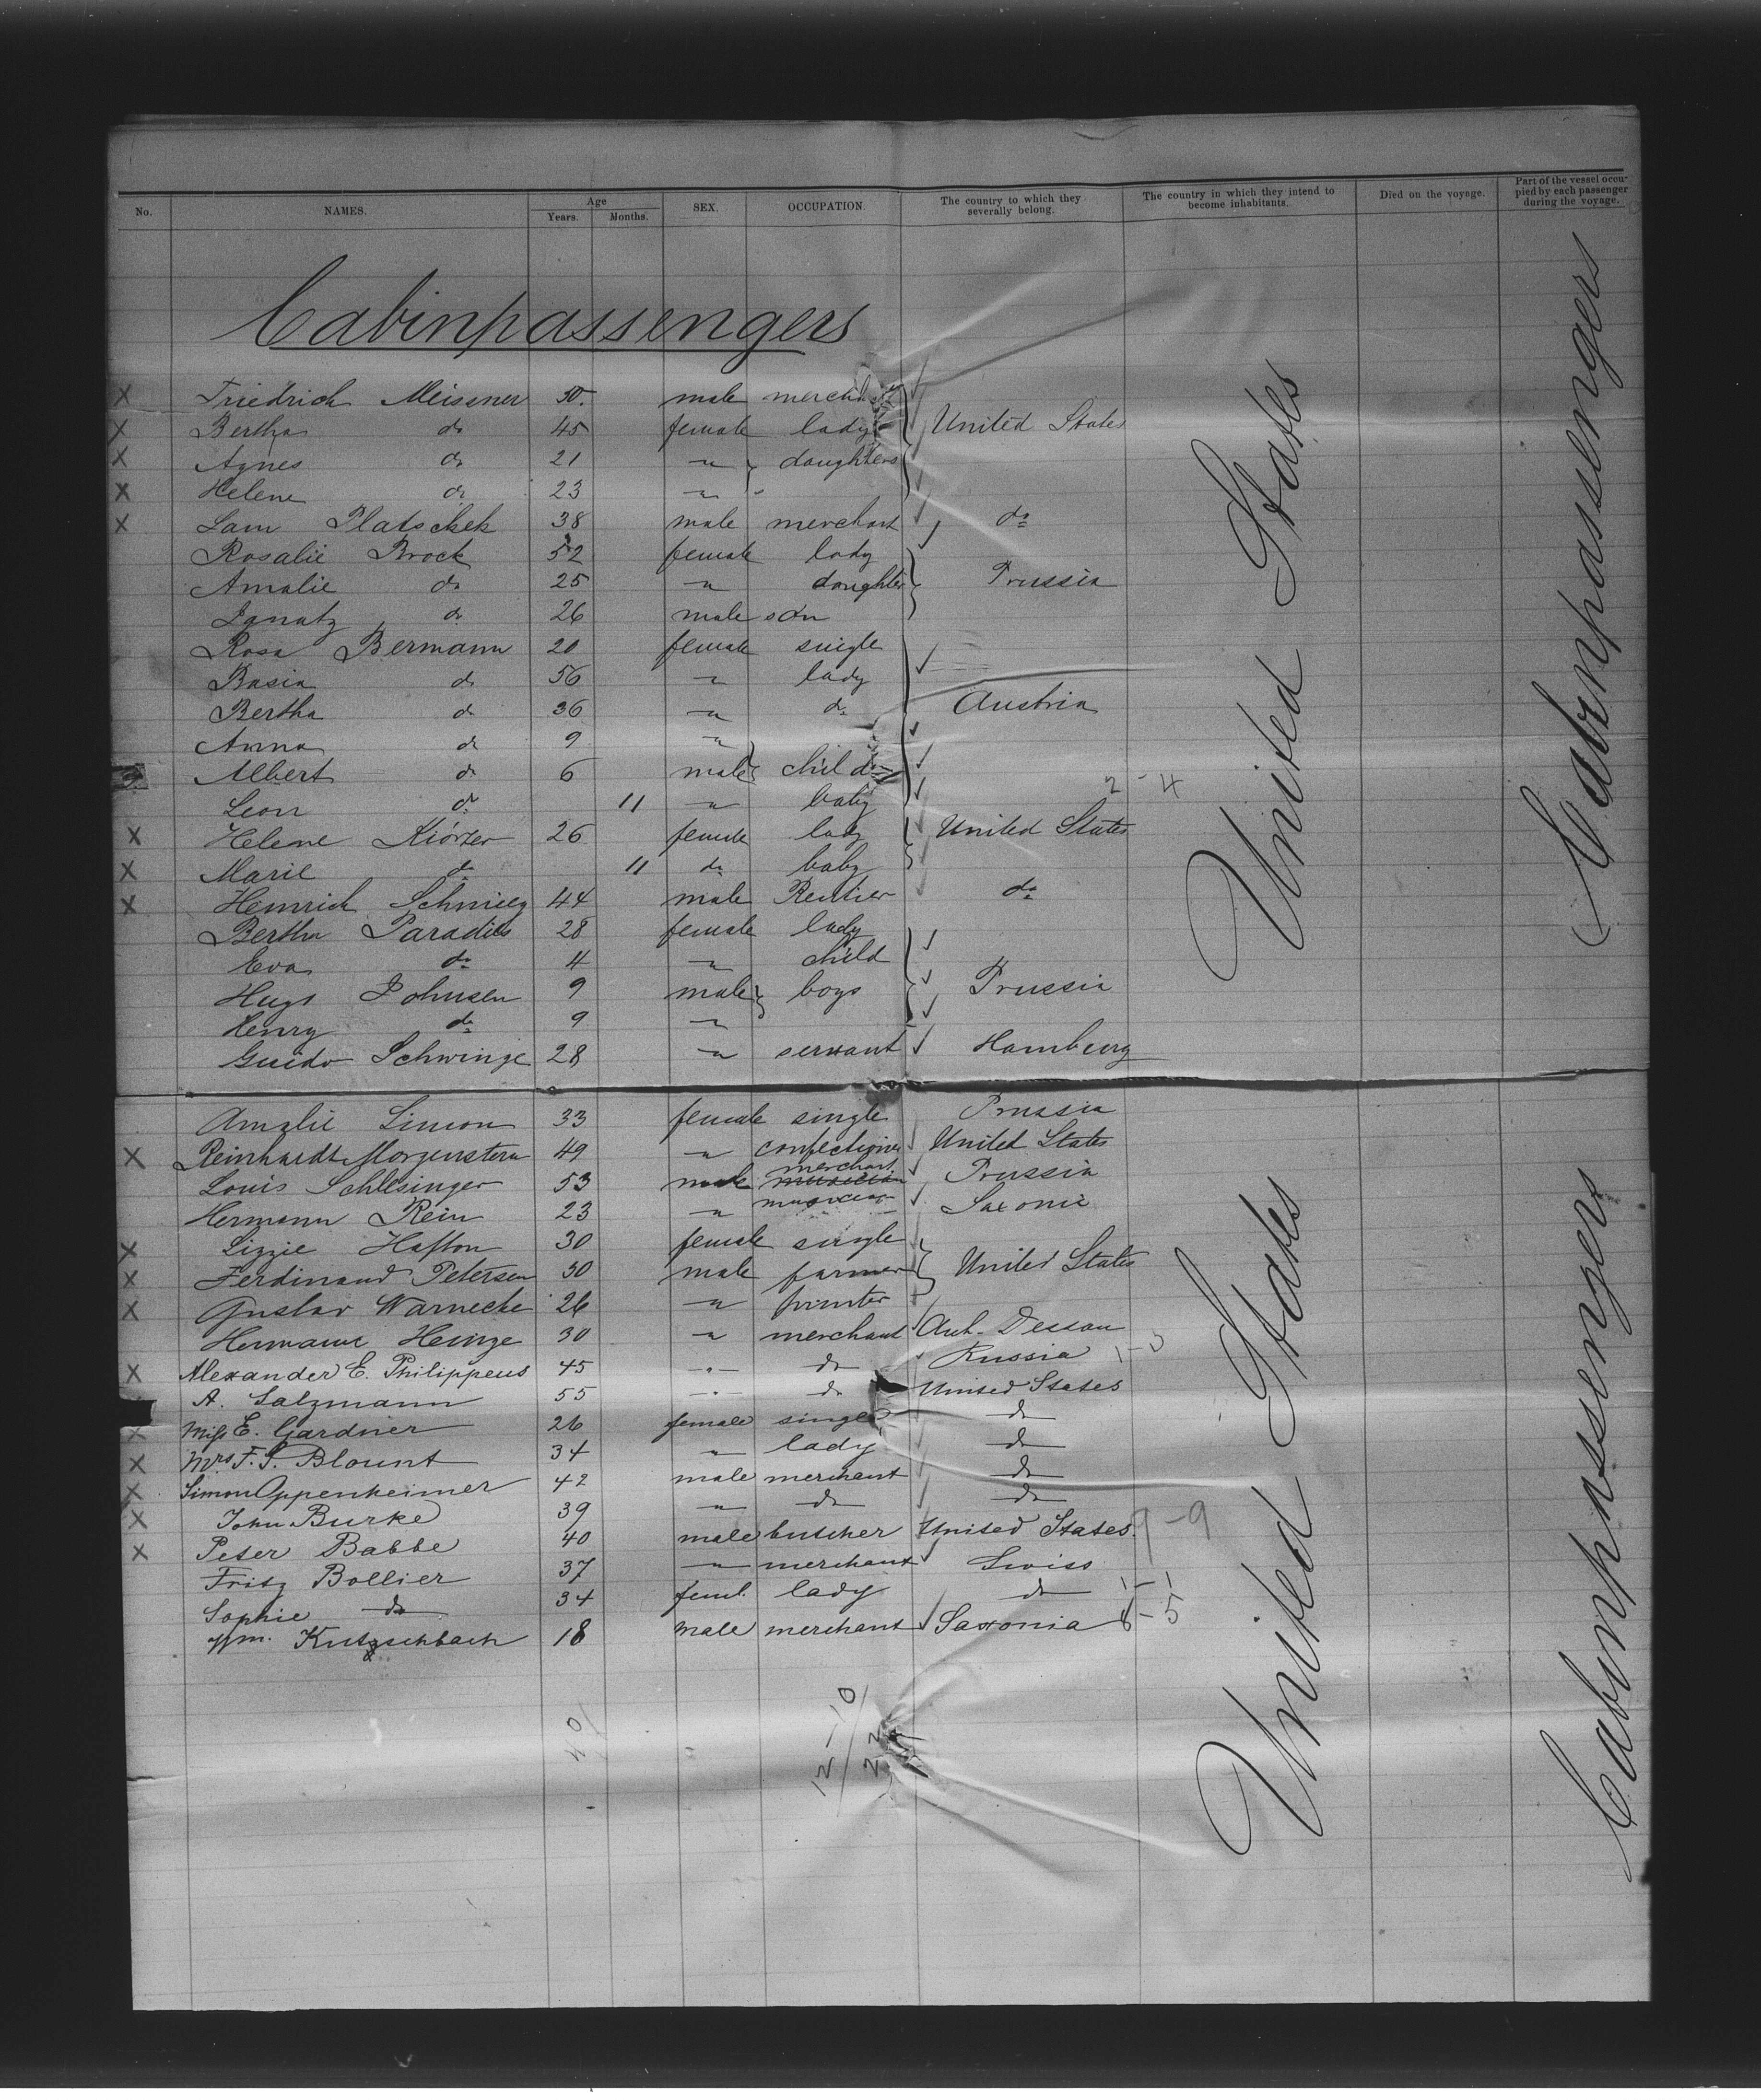 No. NAMES. Age Years. Months. SEX. OCCUPATION. The country to which they severally belong. The country in which they intend to become inhabitants. Died on the voyage. Part of the vessel occupied by each passenger during the voyage.
Cabinpassengers
X Friedrich Meissner 50. male merchant
X Bertha do 45 female lady United States
X Agnes do 21 " daughters
X Helene do 23 "
X Sam Platschek 38 male merchant do
Rosalie Brock 52 female lady
Amalie do 25 " daughter Prussia
Ignatz do 26 male son
Rosa Bermann 20 female single
Basia do 56 " lady
Bertha do 36 " do Austria
Anna do 9 "
Albert do 6 male child
Leon do 11 " baby 2-4
X Helene 26 female lady United States
X Marie do 11 do baby
X Heinrich Schmieg 44 male Rentier do
Bertha Paradies 28 female lady
Eva do 4 " child
Hugo Johnsen 9 male boys Prussia
Henry do 9 "
Guido Schwinge 28 " servant Hamburg
Amalie Simon 33 female single Prussia
X Reinhardt Morgenstern 49 " confectioner United States
Louis Schlesinger 53 male merchant musician Prussia
Hermann Rein 23 " musician Saxonie
X Lizzie Hafton 30 female single
X Ferdinand Petersen 30 male farmer United States
X Gustav Warnecke 26 " printer
Hermann Heinze 30 " merchant Anh. Dessau
X Alexander E. Philippeus 45 " do Russia
A. Salzmann 55 " do United States
X Miss E. Gardner 26 female single do
X Mrs F. S. Blount 34 " lady do
X Simon Oppenheimer 42 male merchant do
X John Burke 39 " do do
X Peter Babbe 40 male butcher United States. 9-9
Fritz Bollier 37 " merchant Swiss
Sophie do 34 feml. lady do 1-1
Wm. Kutzschbach 18 male merchant Saxonia 8-5
40
12-10
22
United States
United States
Cabinpassengers
Cabinpassengers